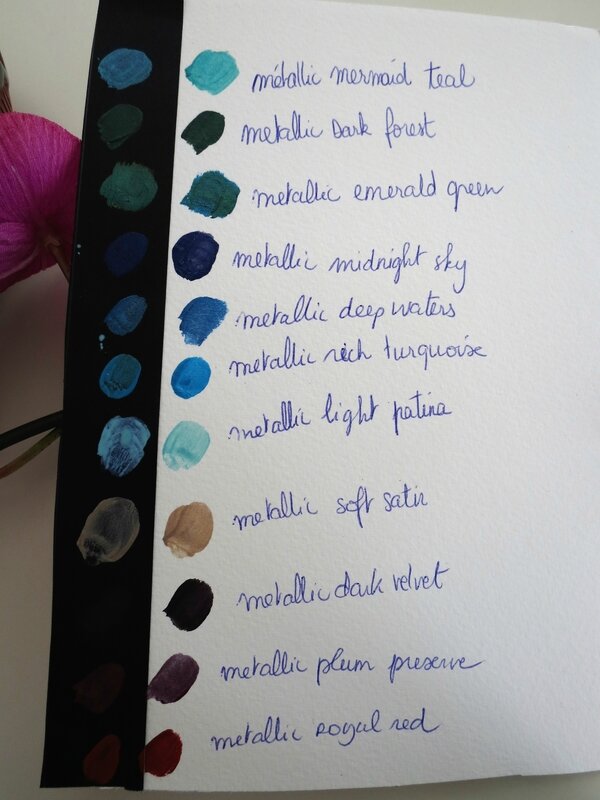 métallic mermaid teal
metallic Dark forest
metallic emerald green
metallic midnight sky
metallic deep waters
metallic rich turquoise
metallic light patina
metallic soft satin
metallic dark velvet
metallic plum preserve
metallic royal red